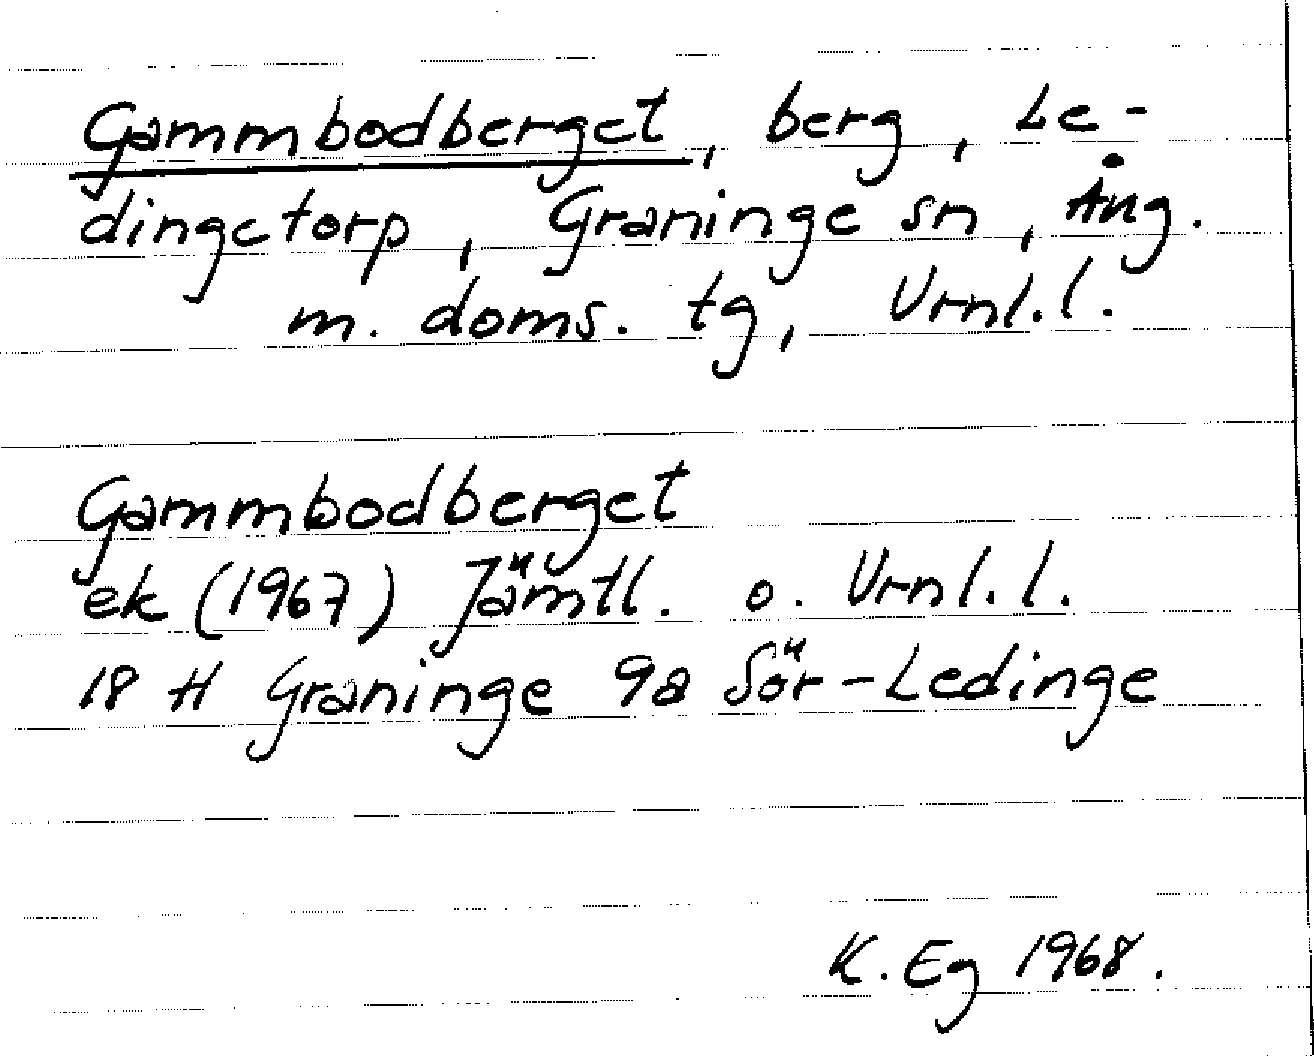 Gammbodberget, berg, Le-
dingetorp, Graninge sn, Ång.
m. doms. tg, Vrnl.l.
Gammbodberget
ek (1967) Jämtl. o. Vrnl.l.
18 H Graninge 9a Sör-Ledinge
K. Eg 1968.